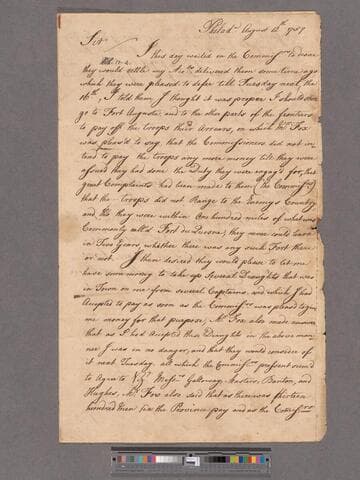 Philad.ª August 12th 1757
Sir
I this day waited on the Commiss.rs to desire
they would settle my Acc.ts delivered them some time ago
which they were pleased to defer till Tuesday next, the
16th, I told them I thought it was proper I should
go to Fort Augusta, and to the other parts of the frontiers
to pay off the Troops their Arrears, on which Mr. Fox
was pleas'd to say, that the Commissioners did not in-
tend to pay the Troops any more money till they were
assured they had done the Duty they were engag'd for, that
great Complaints had been made to them (the Commiss.rs)
that the Troops did not Range to the Enemy's Country
and tho they were within One hundred miles of what was
Commonly called Fort du Quesne, they more could learn
in Two Years whether there was any such Fort there
or not. I then desired they would please to let me
have some money to take up Several Draughts that was
in Town on me from several Captains, and which I had
Accepted to pay as soon as the Commiss.rs was pleased to give
me money for that purpose, Mr. Fox also made answer
that as I had Accepted those Draughts in the above man-
ner I was in no danger, and that they would consider of
it next Tuesday. all which the Commiss.rs present seem'd
to Agree to Viz.t Mess.rs Galloway, Masters, Baynton, and
Hughes, Mr. Fox also said that as there was thirteen
hundred Men in the Province pay and as the Comiss.rs